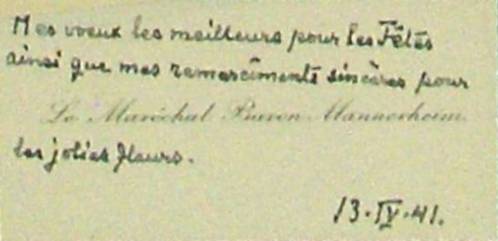 Mes voeux les meilleurs pour les Fêtes
ainsi que mes remercîments sincères pour
Le Maréchal Baron Mannerheim
les jolies fleurs.
13·IV·41.